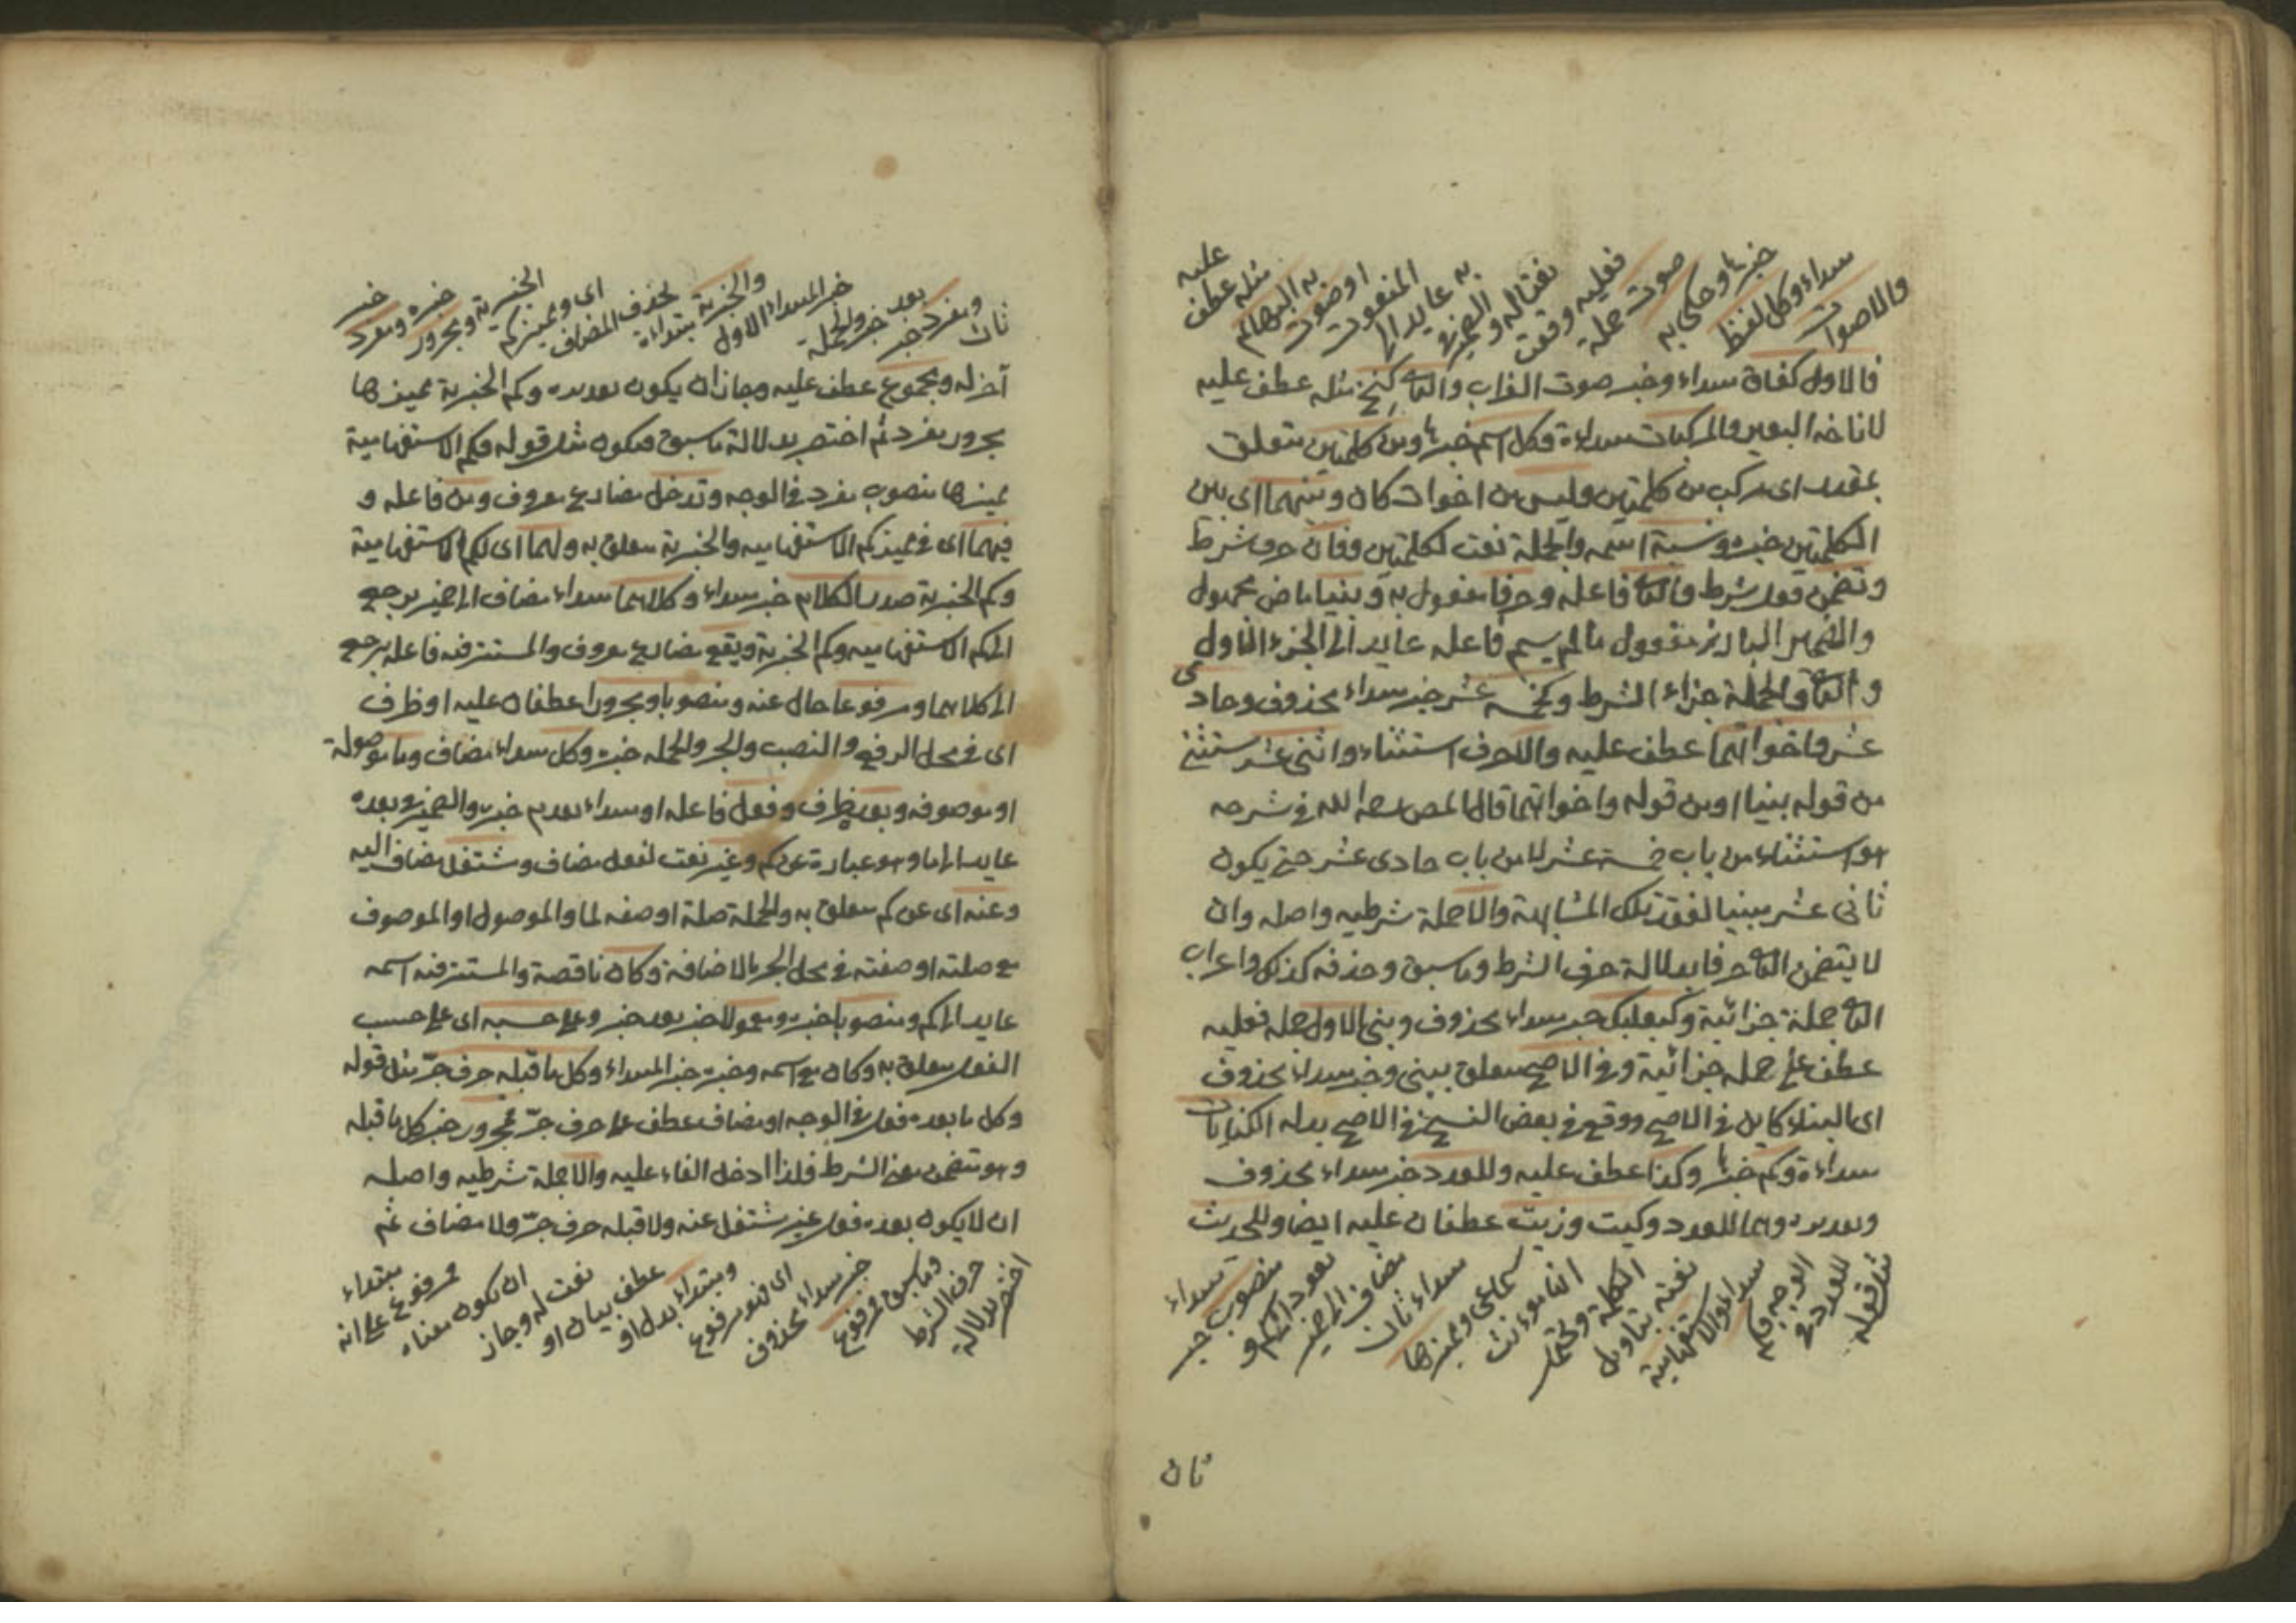 والاصوات
مبتداء وكل لفظ
خبرها وحكى به
صوت جملة
فعليه وقعت
نعتا له والضمير في
به عايد الى
المنعوت
او صوت
به البهائم
مثله عطف
عليه
فالاول كغاق مبتداء وخبر صوت الغراب والثانى كنخ مثله عطف عليه
لاناخة البعير والمركبات مبتداءة وكل اسم خبرها ومن كلمتين متعلق
بمقدر اى مركب من كلمتين وليس من اخوات كان وبينهما اى بين
الكلمتين خبره ونسبة اسمه والجملة نعت لكلمتين وفان حرف شرط
وتضمن فعل شرط والثانى فاعله وحرفا مفعول به وبنيا ماض مجهول
والضمير البارز مفعول مالم يسم فاعله عايد الى الجزء الاول
و الثانى والجملة جزاء الشرط وكخمسة عشر خبر مبتداء محذوف وحادى
عشر واخواتهما عطف عليه والا حرف استثناء واثنى عشر مستثنى
من قوله بنيا او من قوله واخواتهما قال المص رحمه الله في شرحه
هو استثناء من باب خمسة عشر لا من باب حادى عشر حتى يكون
ثانى عشر مبنيا لفقد تلك المشابهة والا جملة شرطيه واصله وان
لا يتضمن الثانى حرفا بدلالة حرف الشرط وما سبق وحذفه كذلك واعراب
الثانى جملة جزائية وكبعلبك خبر مبتداء محذوف وبنى الاول جملة فعليه
عطف على جملة جزائية وفي الاصح متعلق ببنى وخبر مبتداء محذوف
اى البناء كاين في الاصح ووقع في بعض النسخ في الاصح بدله الكنايات
مبتداءة وكم خبرها وكذا عطف عليه وللعدد خبر مبتداء محذوف
وهما للعدد وكيت وذيت عطفان عليه ايضا وللحديث
مثل قوله
للعدد في
الوجه فكم
مبتداء والاستفهامية
نعته بتاويل
الكلمة وكم
التانيث
سماعى ومميزها
مبتداء ثان
مضاف الى ضمير
يعود الى كم و
منصوب خبر
مبتداء
ثان
ثان
ومفرد خبر
بعد خبر والجملة
خبر المبتداء الاول
والخبرية مبتداءة
بحذف المضاف
اى ومميز كم
الخبرية ومجرور
خبره ومفرد
خبر
آخر له ومجموع عطف عليه وجاز ان يكون تقديره وكم الخبرية مميزها
مجرور مفرد ثم اختصر بدلالة ما سبق فيكون مثل قوله فكم الاستفهامية
مميزها منصوب مفرد في الوجه وتدخل مضارع معروف ومن فاعله و
فيهما اى في مميز كم الاستفهامية والخبرية متعلق به ولهما اى لكم الاستفهامية
وكم الخبرية صدر الكلام خبر مبتداء وكلاهما مبتداء مضاف الى ضمير يرجع
الى كم الاستفهاميه وكم الخبرية ويقع مضارع معروف والمستتر فيه فاعله يرجع
الى كلاهما ومرفوعا حال عنه ومنصوبا ومجرورا عطفان عليه او ظرف
اى في محل الرفع والنصب والجر والجملة خبره وكل مبتداء مضاف وما موصولة
او موصوفة وبعده ظرف وفعل فاعله او مبتداء تقدم خبره والضمير في بعده
عايد الى ما وهو عبارة عن كم وغير نعت لفعل مضاف ومشتغل مضاف اليه
وعنه اى عن كم متعلق به والجملة صلة او صفة لما والموصول او الموصوف
مع صلته او صفته في محل الجر بالاضافة وكان ناقصة والمستتر فيه اسمه
عايد الى كم ومنصوبا خبره ومعمولا خبر بعد خبر وعلى حسبه اى على حسب
الفعل متعلق به وكان مع اسمه وخبره خبر المبتداء وكل ما قبله حرف جر مثل قوله
وكل ما بعده فعل في الوجه او مضاف عطف على حرف جر مجرور خبر كل ما قبله
وهو تضمن معنى الشرط فلذا ادخل الفاء عليه والا جملة شرطيه واصله
ان لا يكون بعده فعل غير مشتغل عنه ولا قبله حرف جر ولا مضاف ثم
اختصر بدلالة
حرف الشرط
وما سبق ومرفوع
خبر مبتداء محذوف
اى فهو مرفوع
ومبتداء بدل او
عطف بيان او
نعت له وجاز
ان يكون معناه
مرفوع على انه
مبتداء